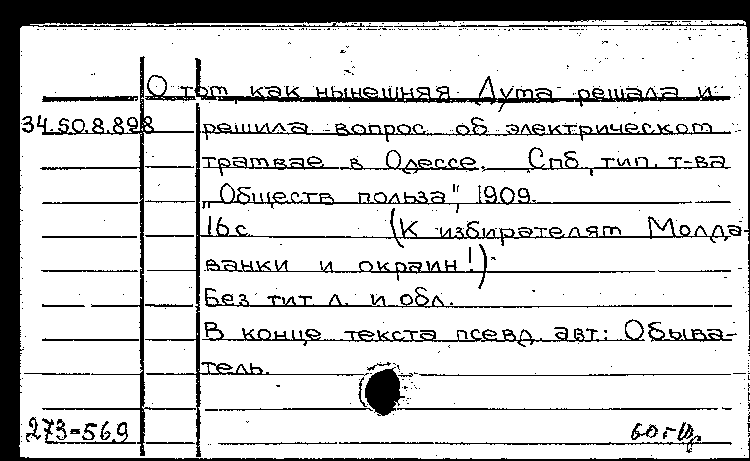 О том, как нынешняя Дума решала и
34.50.8.898 решила вопрос об электрическом
трамвае в Одессе. Спб, тип. т-ва
„Обществ польза", 1909.
16с (К избирателям Молда-
ванки и окраин!)
Без тит л. и обл.
В конце текста псевд. авт: Обыва-
тель.
273-569